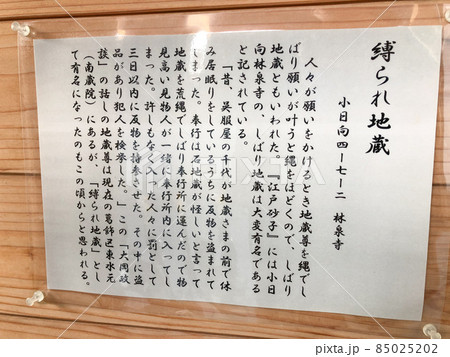 縛られ地蔵
小日向四ー七ー二　林泉寺
人々が願いをかけるとき地蔵尊を縄でし
ばり願いが叶うと縄をほどくので、しばり
地蔵ともいわれた。『江戸砂子』には小日
向林泉寺の、しばり地蔵は大変有名である
と記されている。
「昔、呉服屋の手代が地蔵さまの前で休
み居眠りをしているうちに反物を盗まれて
しまった。奉行は石地蔵が怪しいと言って
地蔵を荒縄でしばり奉行所に運んだので物
見高い見物人が一緒に奉行所内に入ってし
まった。許しもなく入った人々に罰として
三日以内に反物を持参させた。その中に盗
品があり犯人を検挙した。」この「大岡政
談」の話しの地蔵尊は現在の葛飾区東水元
（南蔵院）にあるが、「縛られ地蔵」とし
て有名になったのもこの頃からと思われる。
pixta
85025202